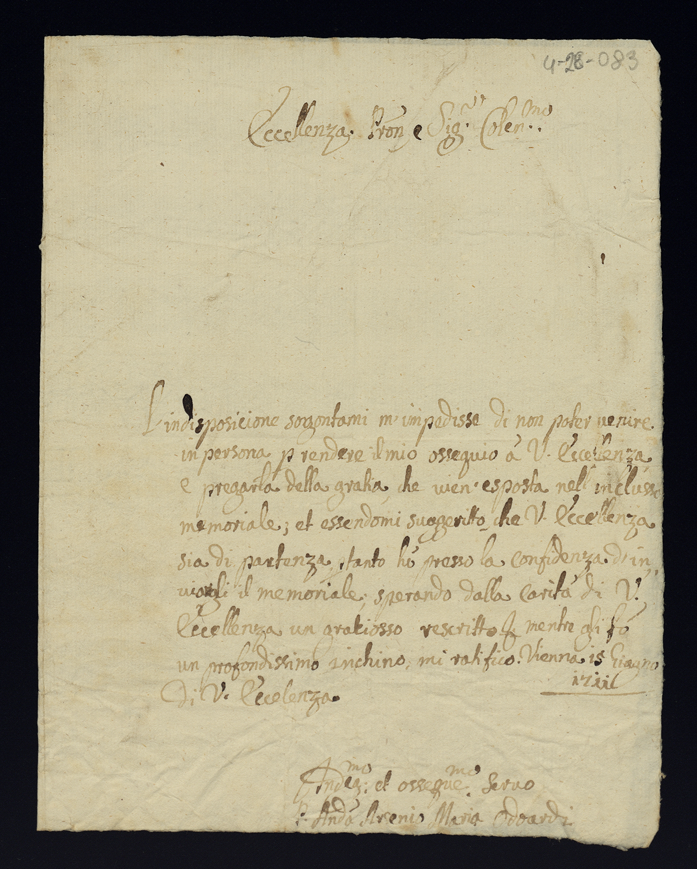 4-28-083
Eccellenza Pron e Sig.r Colen.mo
L'indisposicione m'impedisse di non poter venire
in persona p rendere il mio ossequio à V. Eccellenza
e pregarla della gratia che vien esposta nell'inclusso
memoriale; et essendomi suggeritto che V. Eccellenza
sia di partenza, tanto hò presso la confidenza d'in
viargli il memoriale; sperando dalla carità di V.
Eccellenza un gratiosso rescritto mentre gli fò
un profondissimo inchino, mi ratifico. Vienna 15 Giugno
Di V. Eccelenza
et osseque.mo Servo
Arsenio Maria Odoardi